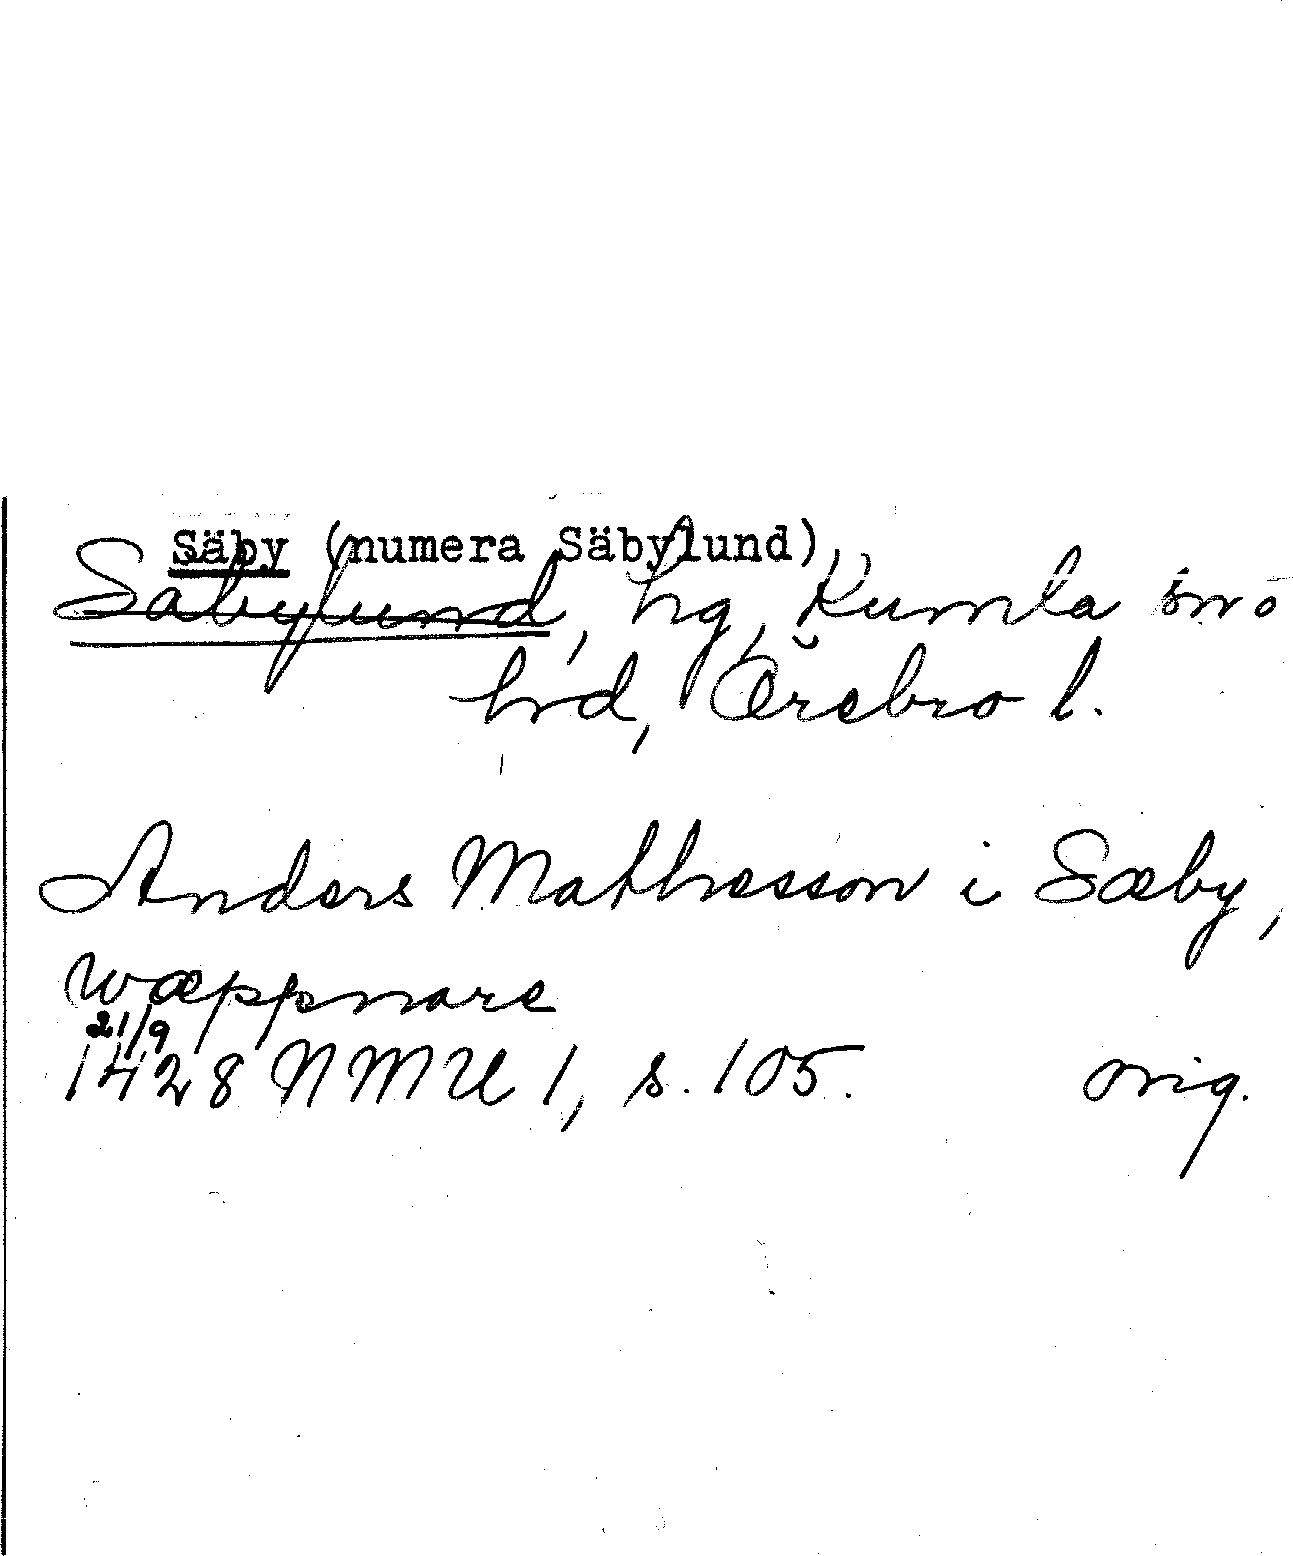 Säby (numera Säbylund),
Säbylund, hg, Kumla sn o
hd, Örebro l.
Anders Mathesson i Sæby,
wæppnare
21/9
1428 NMU 1, s. 105. orig.